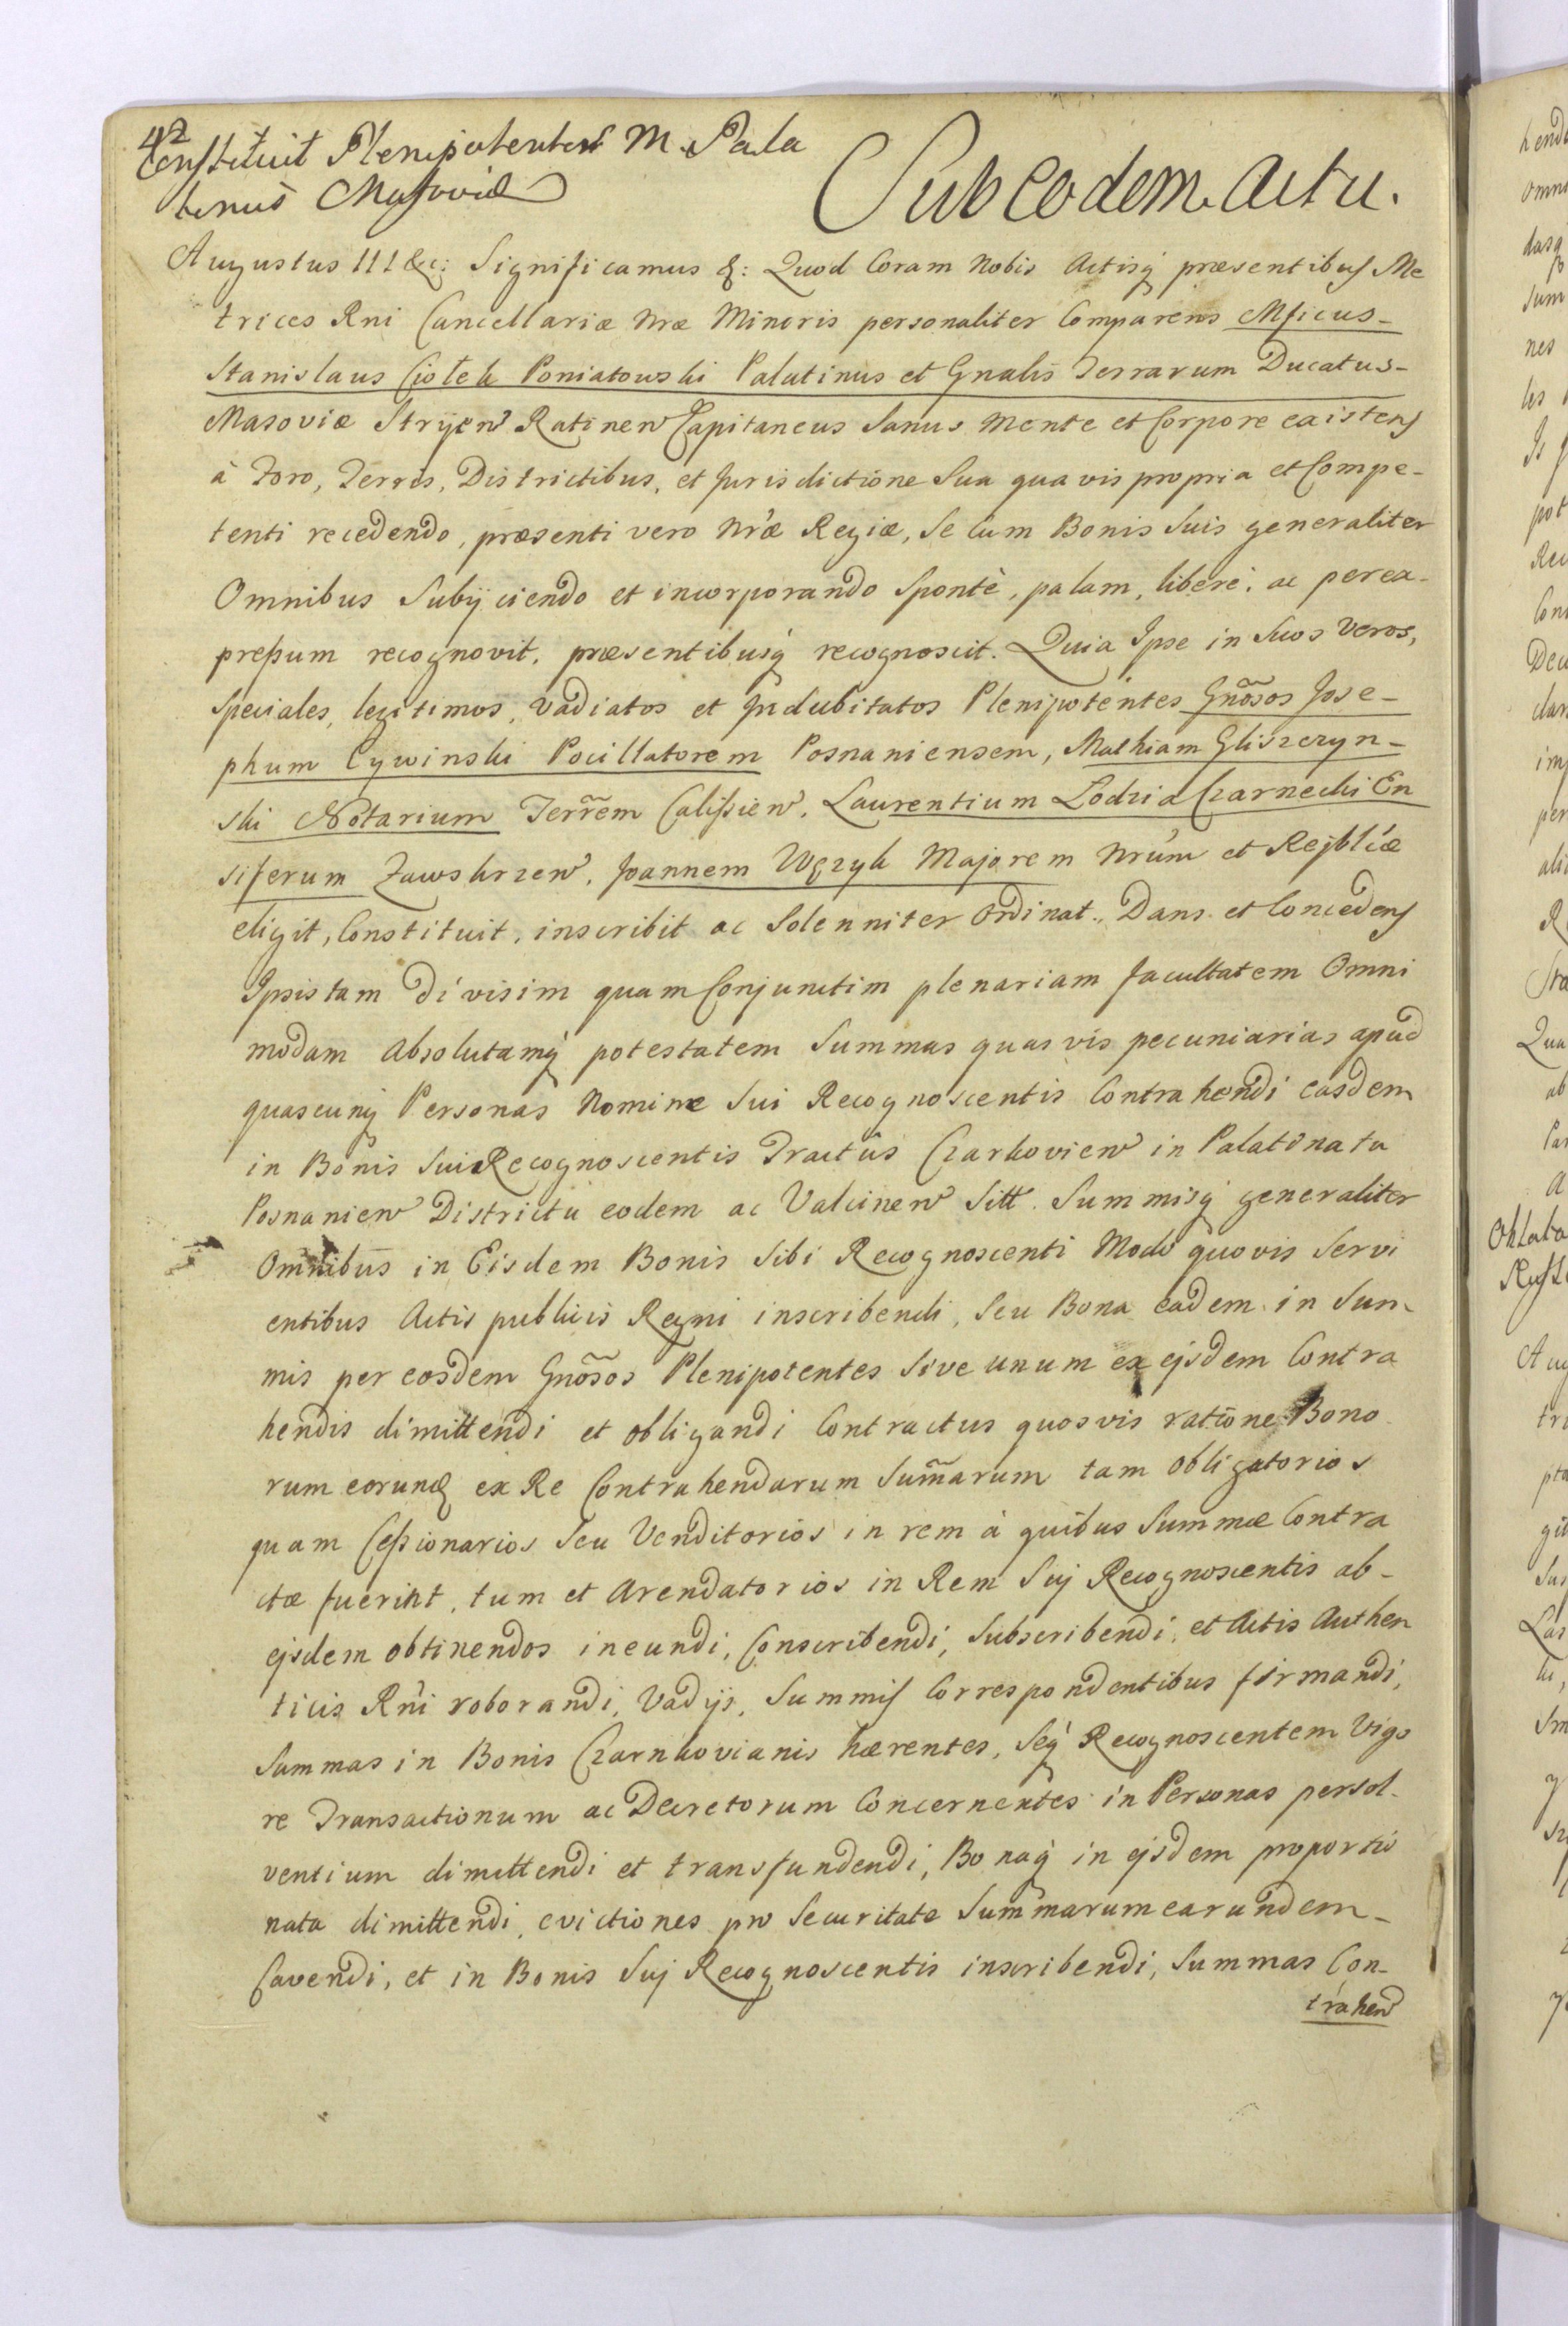 42
Constituit Plenipotentes M. Pala
tinus Masoviæ
Sub eodem Actu.
Augustus III &c: Significamus &: Quod Coram Nobis Actisq præsentibus Me
trices Rni Cancellariæ Nræ Minoris personaliter Comparens Mficus
Stanislaus Ciołek Poniatowski Palatinus et Gnalis Terrarum Ducatus
Masoviæ Stryen Ratinen Capitaneus Sanus Mente et Corpore existens
à Foro, Terris, Districtibus, et Jurisdictione Sua quavis propria et Compe-
tenti recedendo, præsenti vero Nræ Regiæ, Se Cum Bonis Suis generaliter
Omnibus Subijciendo et incorporando Spontè, palam, liberè, ac perex-
preßum recognovit, præsentibusq recognoscit. Quia Ipse in Suos Veros,
Speciales, legitimos, Vadiatos et Indubitatos Plenipotentes Gnõsos Jose-
phum Cywinski Pocillatorem Posnaniensem, Mathiam Gliszczyn-
ski Notarium Terrẽm Calißien, Laurentium Łodzia Czarnecki En
siferum Zawskrzen, Joannem Węzyk Majorem Nrum et Reiblicæ
eligit, Constituit, inscribit ac Solenniter Ordinat. Dans et Concedens
Ipsis tam divisim quam Conjunctim plenariam facultatem Omni
modam Absolutamq potestatem Summas quasvis pecuniarias apud
quascunq Personas Nomine Sui Recognoscentis Contrahendi easdem
in Bonis Sui Recognoscentis Tractus Czarkovien in Palatinatu
Posnanien Districtu eodem ac Valcinen Sitt. Summisq generaliter
Omnibus in Eisdem Bonis Sibi Recognoscenti Modo quovis Servi
entibus Actis publicis Regni inscribendi, Seu Bona eadem in Sum
mis per eosdem Gnõsos Plenipotentes Sive unum ex ejsdem Contra
hendis dimittendi et obligandi Contractus quosvis ratione Bono
rum eorund ex Re Contrahendarum Sum̃arum tam Obligatorios
quam Ceßionarios Seu Venditorios in rem à quibus Summæ Contra
ctæ fuerint, tum et Arendatorios in Rem Suj Recognoscentis ab-
ejsdem obtinendos ineundi, Conscribendi, Subscribendi, et Actis Authen
ticis Rni roborandi, Vadijs, Summis Correspondentibus firmandi,
Summas in Bonis Czarnkovianis hærentes, Seq Recognoscentem Vigo
re Transactionum ac Decretorum Concernentes in Personas persol-
ventium dimittendi et transfundendi, Bonaq in ejsdem proportio
nata dimittendi, evictiones pro Securitate Summarum earundem
Cavendi, et in Bonis Suj Recognoscentis inscribendi, Summas Con-
trahen